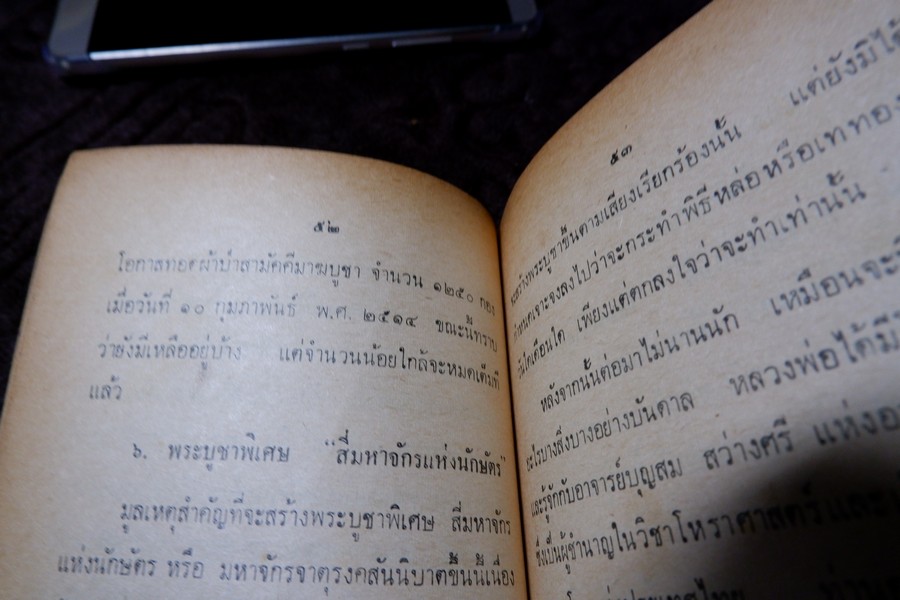 ๕๒
โอกาสทอดผ้าป่าสามัคคีมาฆบูชา จำนวน ๑๒๕๐ กอง
เมื่อวันที่ ๑๐ กุมภาพันธ์ พ.ศ. ๒๕๑๔ ขณะนี้ทราบ
ว่ายังมีเหลืออยู่บ้าง แต่จำนวนน้อยใกล้จะหมดเต็มที
แล้ว
๖. พระบูชาพิเศษ "สี่มหาจักรแห่งนักษัตร"
มูลเหตุสำคัญที่จะสร้างพระบูชาพิเศษ สี่มหาจักร
แห่งนักษัตร หรือ มหาจักรจาตุรงคสันนิบาตขึ้นนี้เนื่อง
๕๓
จะสร้างพระบูชาขึ้นตามเสียงเรียกร้องนั้น แต่ยังมิได้
กำหนดเจาะจงลงไปว่าจะกระทำพิธีหล่อหรือเททอง
วันใดเดือนใด เพียงแต่ตกลงใจว่าจะทำเท่านั้น
หลังจากนั้นต่อมาไม่นานนัก เหมือนจะ
อะไรบางสิ่งบางอย่างบันดาล หลวงพ่อได้มี
และรู้จักกับอาจารย์บุญสม สว่างศรี แห่ง
ซึ่งเป็นผู้ชำนาญในวิชาโหราศาสตร์และ